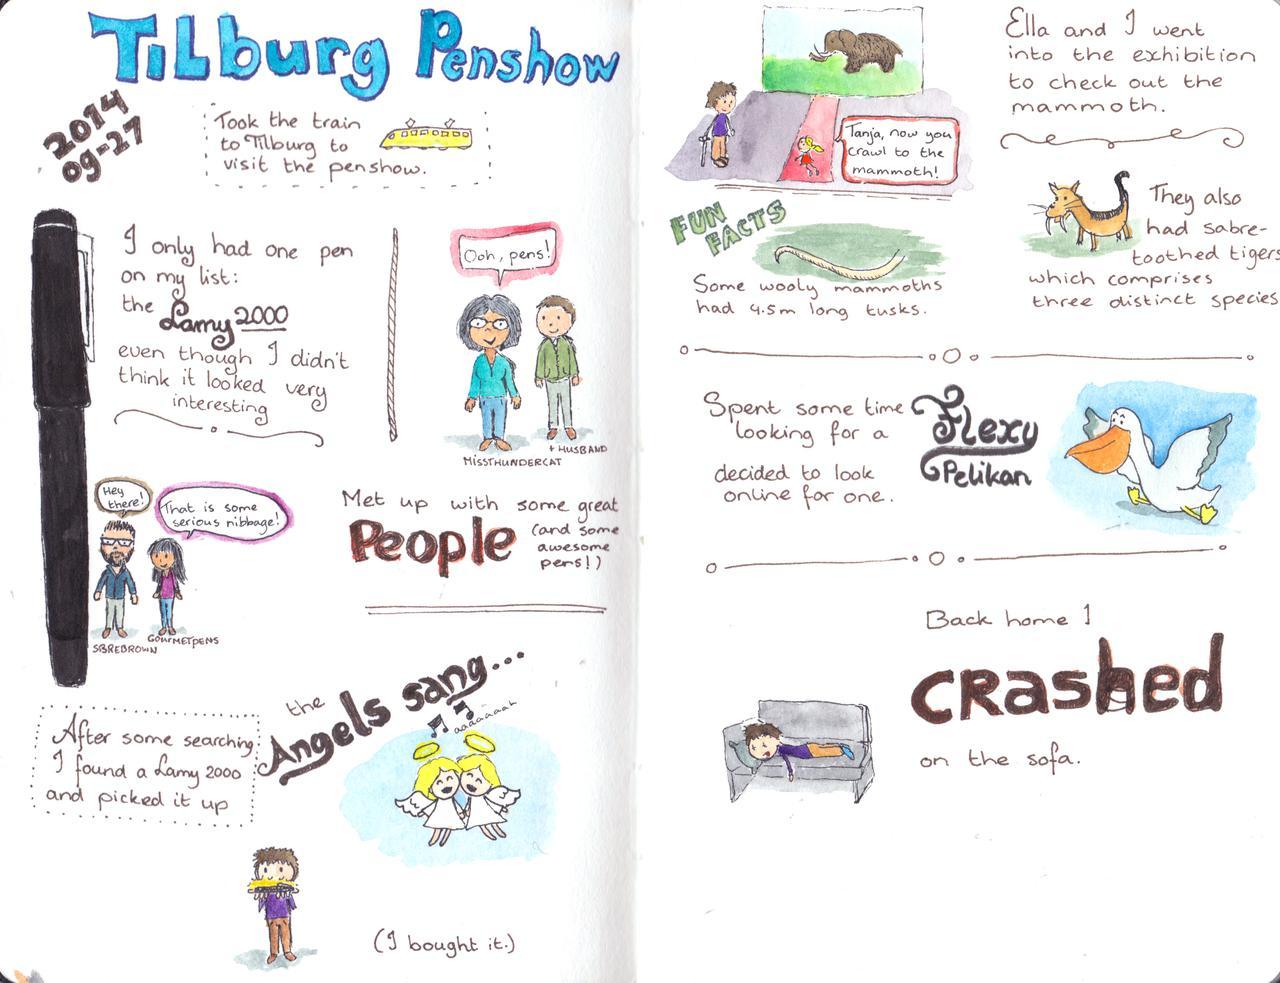 Tilburg Penshow
2014
09-27
Took the train
to Tilburg to
visit the penshow.
I only had one pen
on my list:
the Lamy 2000
even though I didn't
think it looked very
interesting
Ooh, pens!
MISSTHUNDERCAT
+ HUSBAND
Hey
there!
That is some
serious nibbage!
SBREBROWN
GOURMETPENS
Met up with some great
People (and some
awesome
pens!)
After some searching
I found a Lamy 2000
and picked it up
the
Angels sang...
aaaaaaah
(I bought it.)
Tanja, now you
crawl to the
mammoth!
Ella and I went
into the exhibition
to check out the
mammoth.
FUN
FACTS
Some wooly mammoths
had 4.5m long tusks.
They also
had sabre-
toothed tigers
which comprises
three distinct species
Spent some time
looking for a
Flexy
Pelikan
decided to look
online for one.
Back home I
crashed
on the sofa.